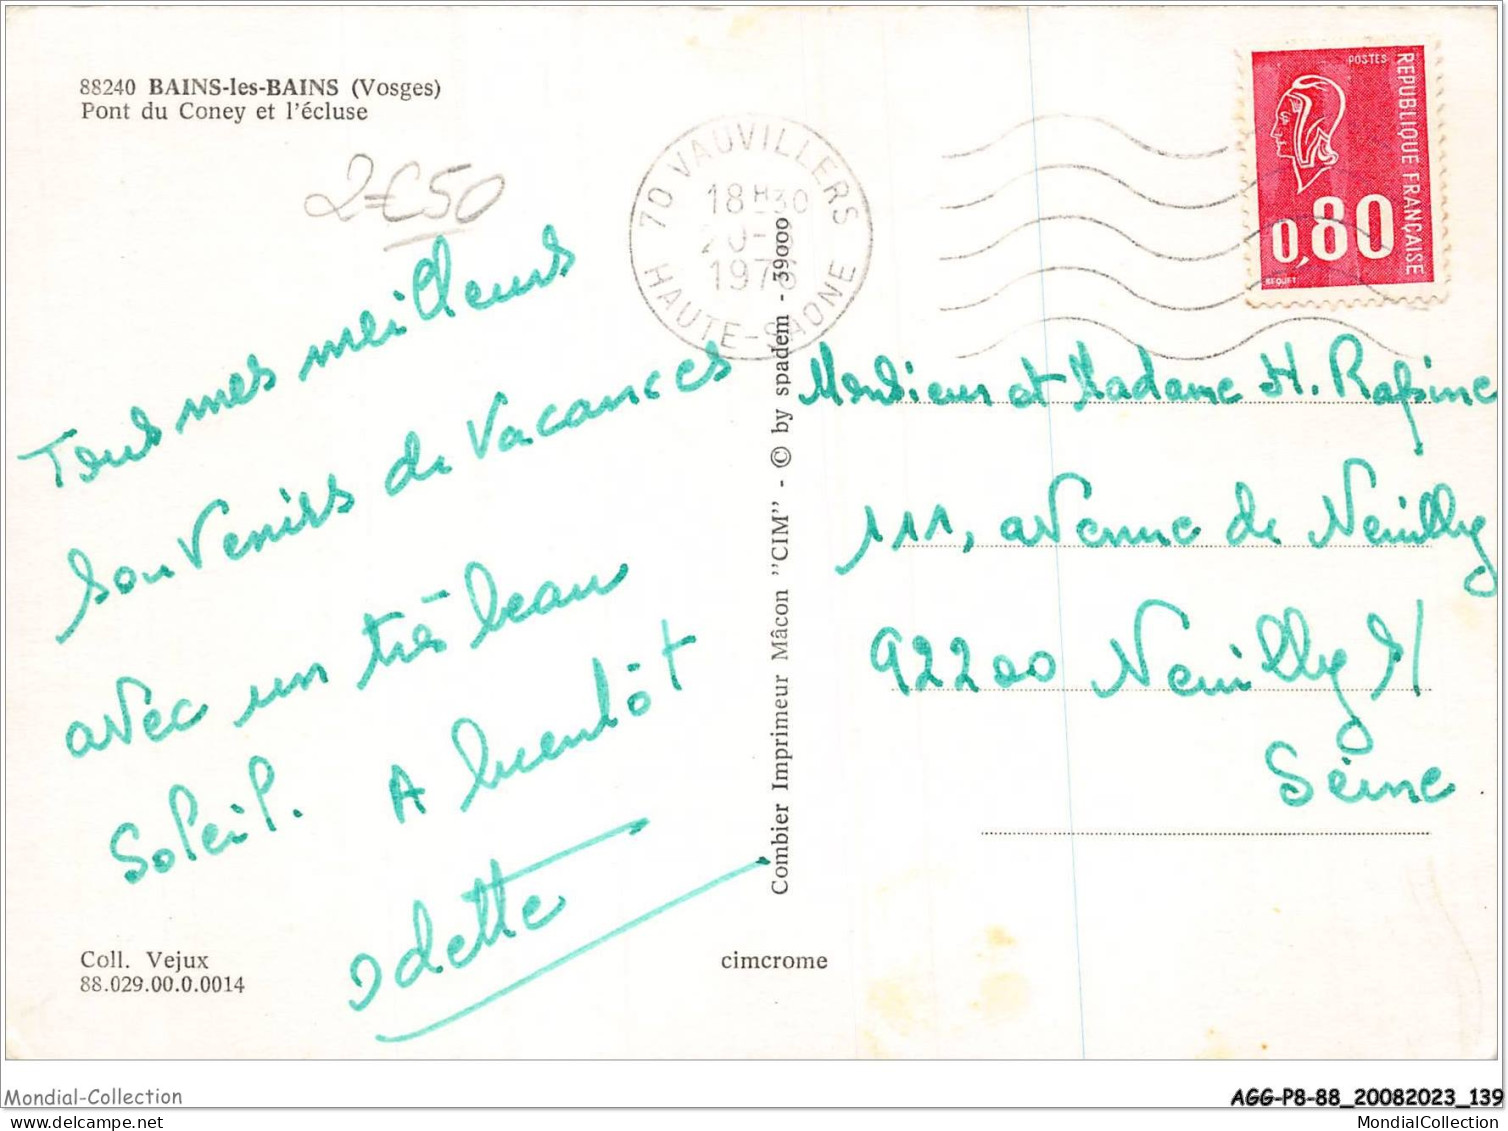 88240 BAINS-les-BAINS (Vosges)
Pont du Coney et l'écluse
2€50
70 VAUVILLERS
18H30
1976
HAUTE-SAONE
POSTES
REPUBLIQUE FRANÇAISE
0,80
BEQUET
Tous mes meilleurs
souvenirs de Vacances
avec un très beau
soleil. A bientôt
Odette
Combier Imprimeur Mâcon "CIM" - © by spadem - 39000
Monsieur et Madame H.
111, avenue de Neuilly
92200 Neuilly s/
Seine
Coll. Vejux
88.029.00.0.0014
cimcrome
Mondial-Collection
AGG-P8-88_20082023_139
MondialCollection.com